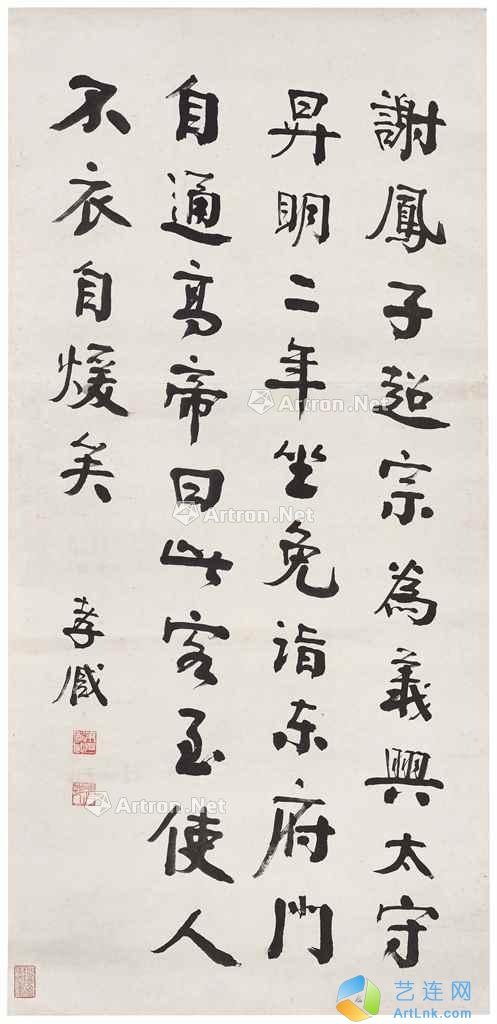 謝鳳子超宗為義興太守
昇明二年坐免詣東府門
自通高帝曰此客至使人
不衣自煖矣
孝胥
Artron.Net
Artron.Net
Artron.Net
Artron.Net
艺连网
ArtLnk.com